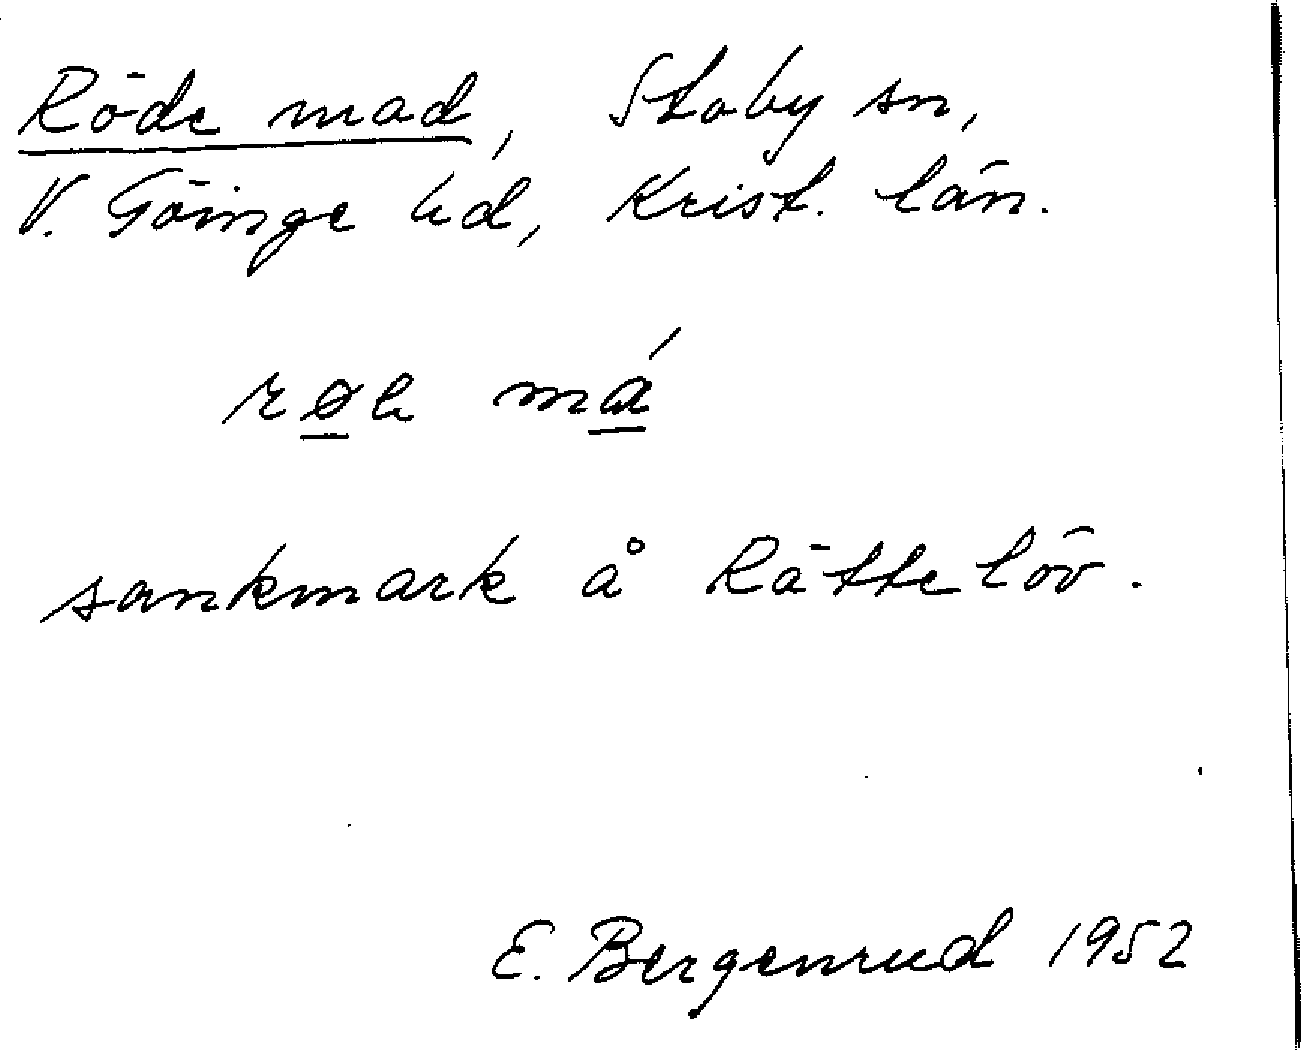 Röde mad, Stoby sn,
V. Göinge hd, Krist. län.
røh má
sankmark å Rättelöv.
E. Bergenrud 1952